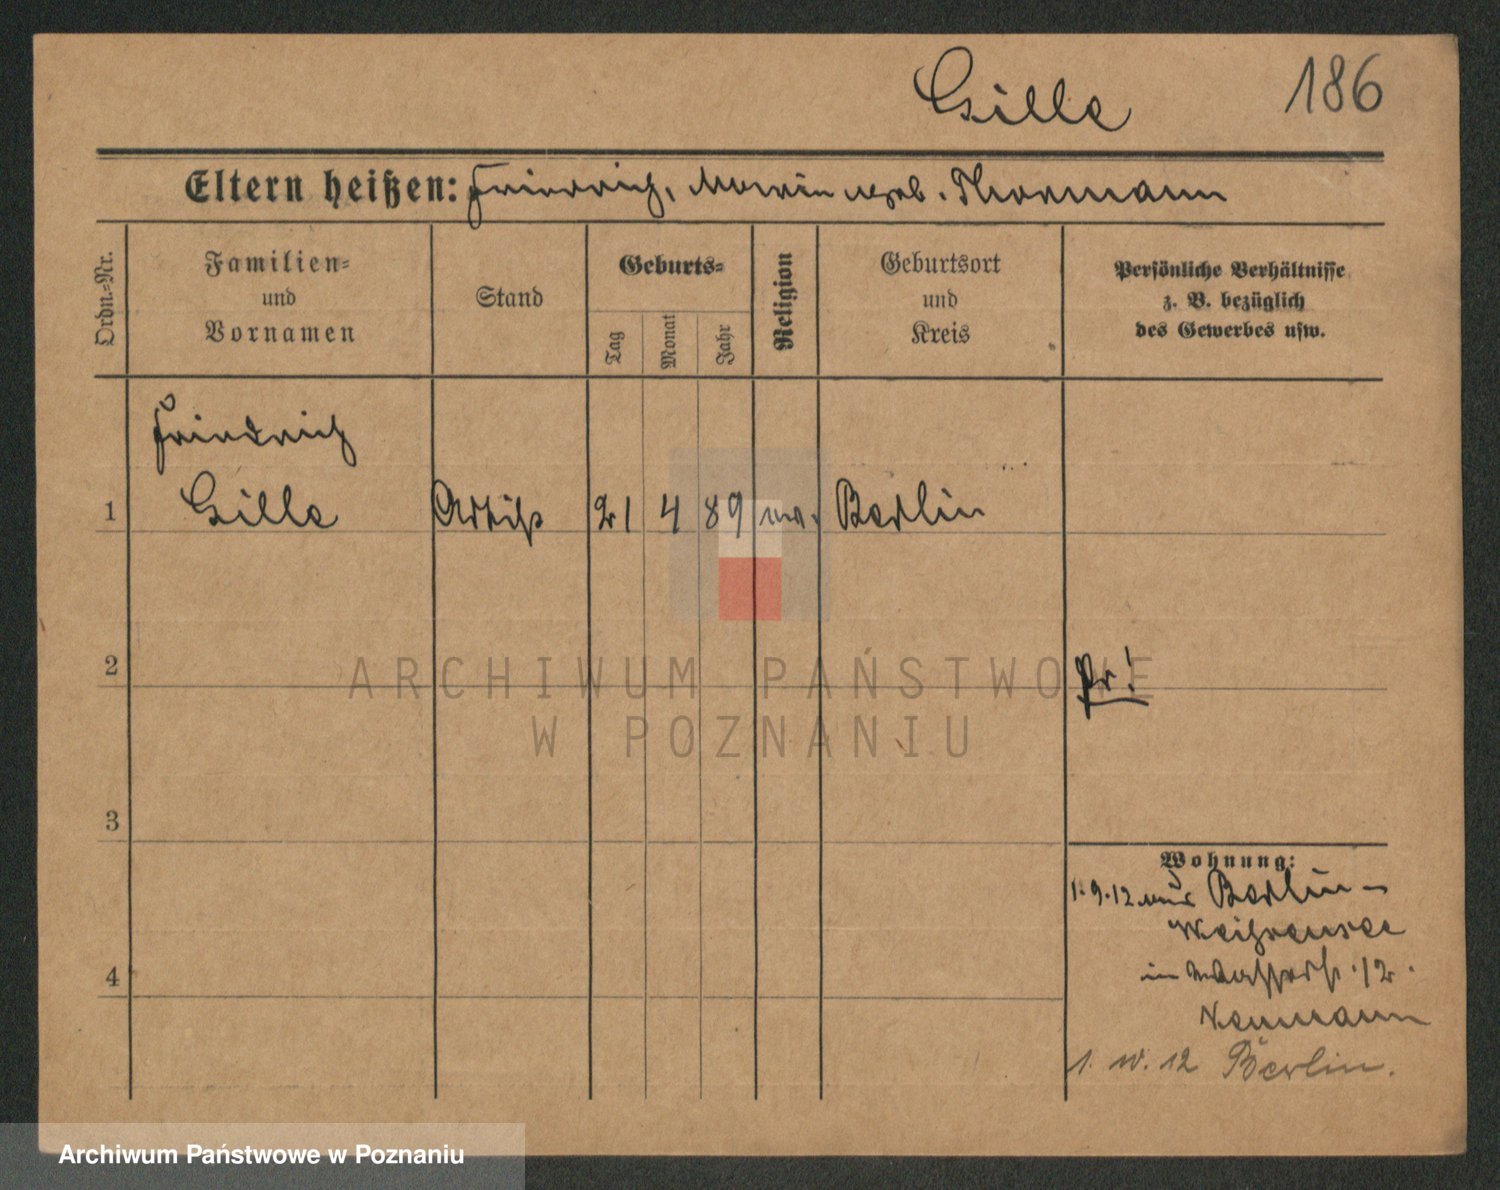 Gille 186
Eltern heißen: Friedrich, Marie geb. Thormann
Ordn.-Nr.
Familien-
und
Vornamen
Stand
Geburts-
Tag
Monat
Jahr
Religion
Geburtsort
und
Kreis
Persönliche Verhältnisse
z. B. bezüglich
des Gewerbes usw.
Friedrich
1 Gille Artist 21 4 89 ev. Berlin
2 Pr!
3
4
Wohnung:
1.9.12 aus Berlin-
Weißensee
in 12.
Neumann
1. 10. 12 Berlin.
ARCHIWUM PAŃSTWOWE
W POZNANIU
Archiwum Państwowe w Poznaniu